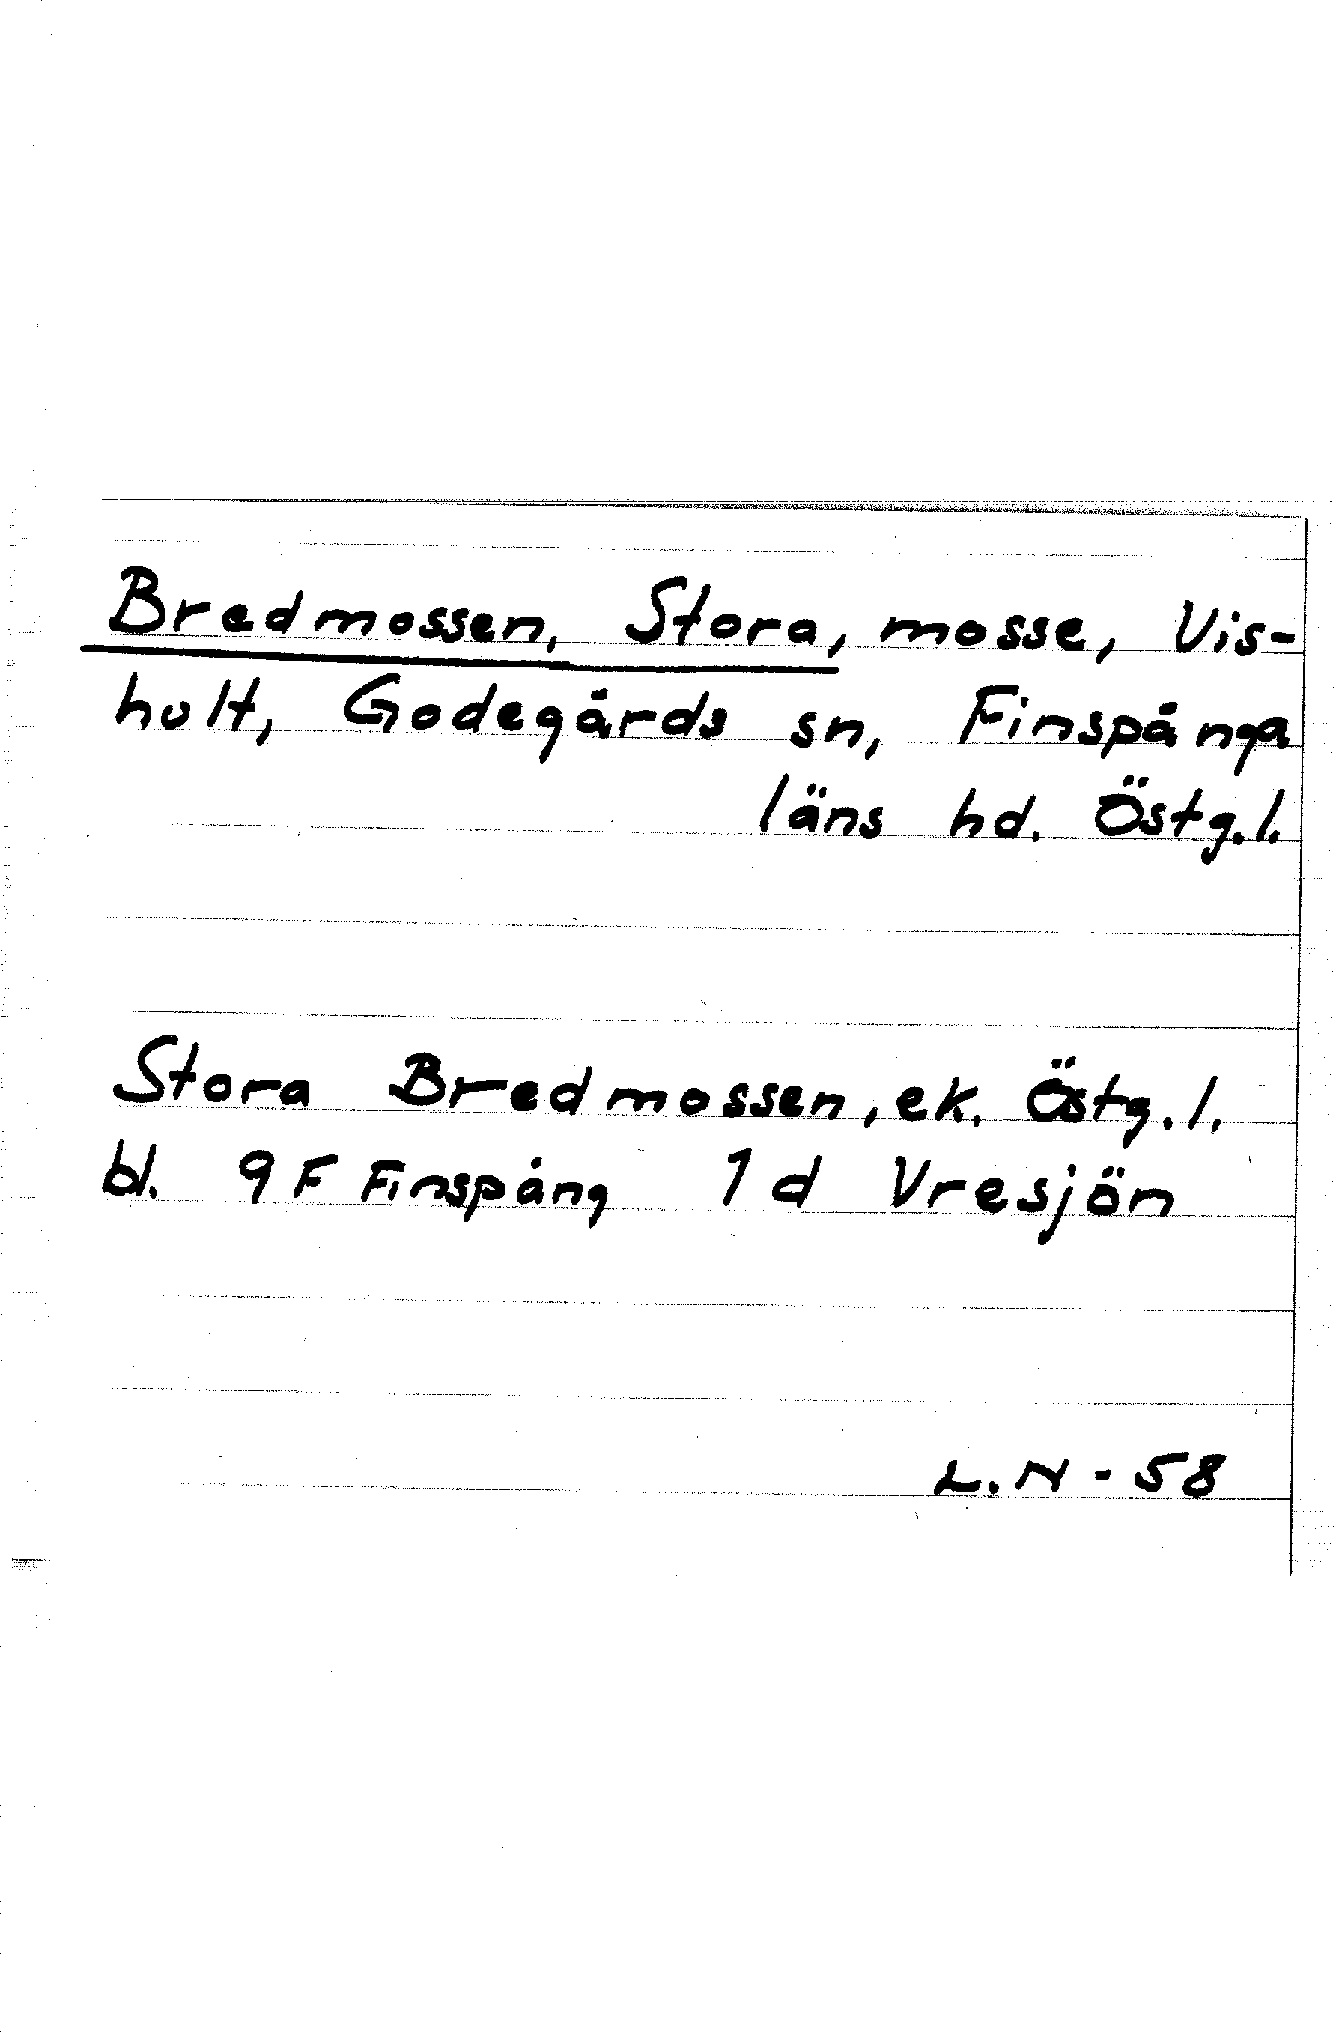 Bredmossen, Stora, mosse, Vis-
hult, Godegårds sn, Finspånga
läns hd. Östg.l.
Stora Bredmossen, ek. Östg.l.
bl. 9F Finspång 1d Vresjön
L.N - 58